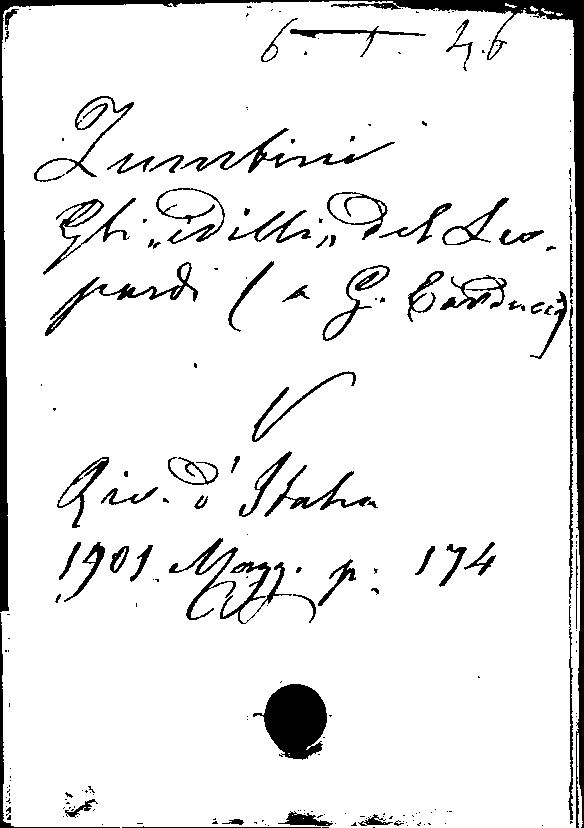 6. 1. 46
Zumbini
Gli „idilli„ del Leo-
pardi (a G. Carducci)
V
Riv. d'Italia
1901 Magg. p. 174